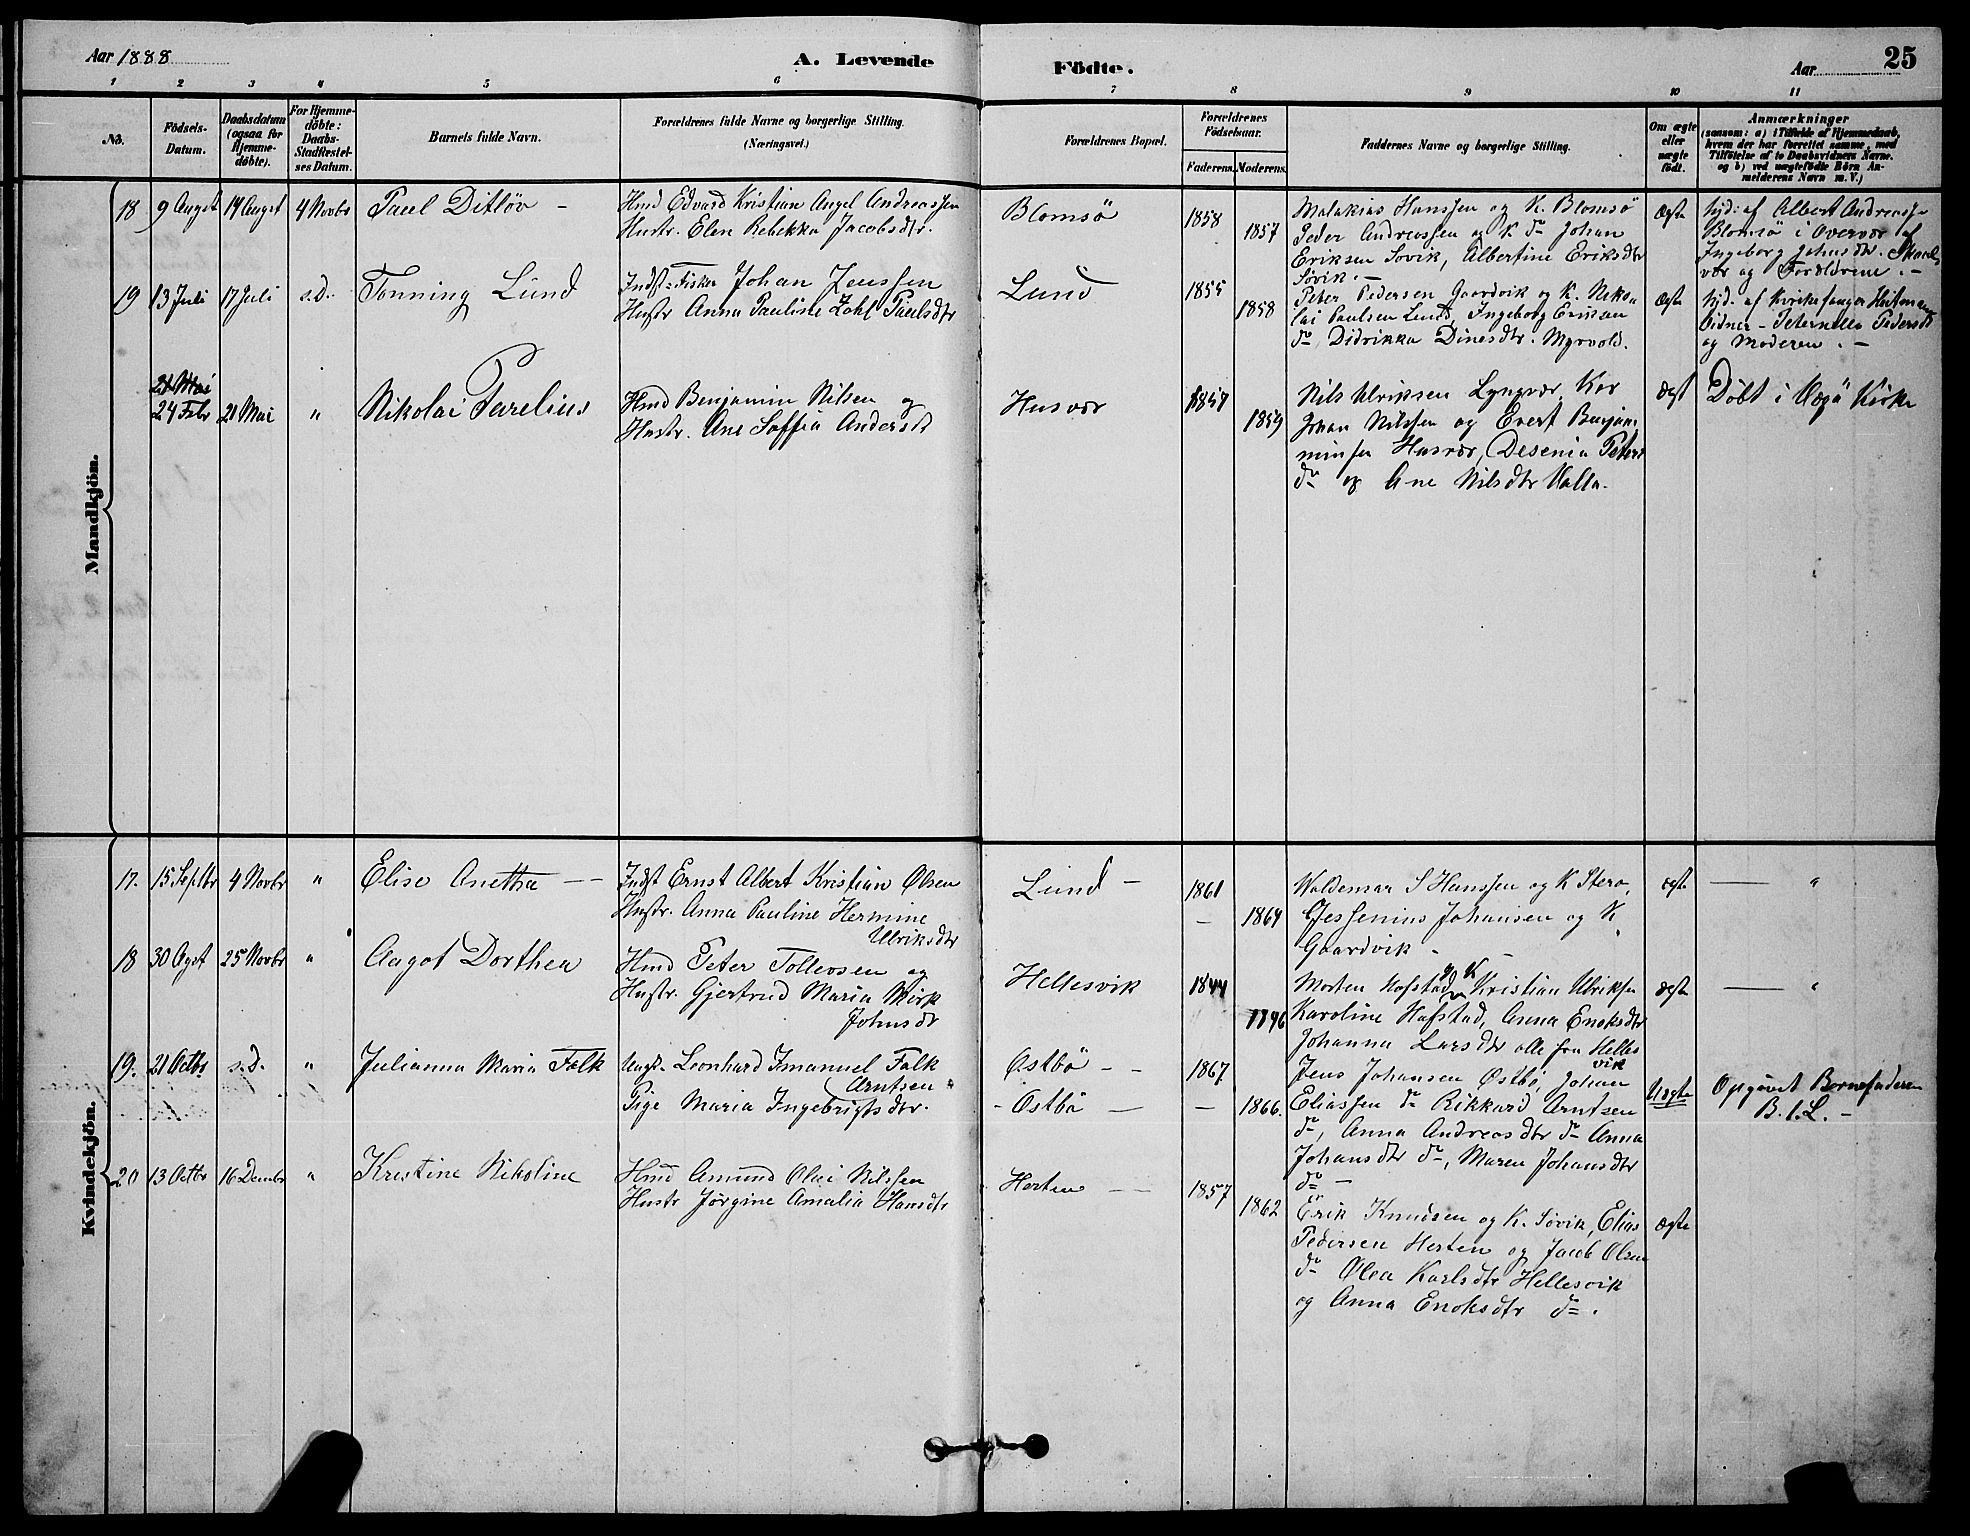 Aar 1888
A. Levende
Födte.
Aar
25
1 2 3 4 5 6 7 8 9 10 11
No.
Födsels-
Datum.
Daabsdatum
(ogsaa for
Hjemme-
döbte).
For Hjemme-
döbte:
Daabs-
Stadfæstel-
ses Datum.
Barnets fulde Navn.
Forældrenes fulde Navne og borgerlige Stilling.
(Næringsvei.)
Forældrenes Bopæl.
Forældrenes
Födselsaar.
Faderens. Moderens.
Faddernes Navne og borgerlige Stilling.
Om ægte
eller
uægte
født.
Anmærkninger
(saasom: a) i Tilfælde af Hjemmedaab,
hvem der har forrettet samme, med
Tilföielse af to Daabsvidners Navne.
og b) ved uægtefödte Börn An-
melderens Navn m. V.)
Mandkjön.
18 9 Augst 14 Augst 4 Novbr Paul Ditløv -
Hmd Edvard Kristian Angel Andreassen
Hustr. Elen Rebekka Jacobsdtr.
Blomsö
1858
1857
Malakias Hanssen og K. Blomsö
Peder Andreassen og K. do Johan
Eriksen Sövik, Albertine Eriksdtr
Sövik. -
Ægte
Hjd: af Albert Andreass-
Blomsö i Overvær af
Ingeborg Johnsdtr.
vær og Forældrene. -
19 13 Juli 17 Juli s.d. Tonning Lund
Indst - Fisker Johan Jenssen
Hustr Anna Pauline Zahl Paulsdtr
Lund
1855
1858
Peter Pedersen Gaardvik og K. Niko-
lai Paulsen Lund, Ingeborg Eriksen
do, Didrikka Dinesdtr. Myrvold.
Ægte
Hjd. af
- Peternella Pedersdt
og Moderen. -
21 Mai
24 Febr 21 Mai " Nikolai Parelius
Hmd Benjamin Nilsen og
Hustr. Ane Soffia Andersdt
Husvær
1857
1859
Nils Ulriksen Lyngvær,
Johan Nilssen og Evert Benja-
minsen Husvær, Desenia Peters
do og Ane Nilsdtr Valla.
Ægt
Døbt i Vegö Kirke
Kvindekjön.
17. 15 Septbr 4 Novbr " Elise Anetha -
Indst Ernst Albert Kristian Olsen
Hustr. Anna Pauline Hermine
Ulriksdtr
Lund -
1861
- 1864
Waldemar S Hanssen og K Stero,
Jessenius Johansen og K
Gaardvik -
ægte
- "
18 30 Agst 25 Novbr " Aagot Dorthea
Hmd Peter Tollevsen og
Hustr. Gjertrud Maria Mörk
Johnsdtr
Hellesvik
1844
Morten Hofstad og K Kristian Ulriksen
Karoline Hofstad, Anna Enoksdtr
Johanna Larsdtr alle fra Helles
vik
ægte
- "
19. 21 Octbr s.d. " Julianna Maria Falk
Ungk. Leonhard Imanuel Falk
Arntsen "
Pige Maria Ingebrigtsdtr.
Östbö - -
- Östbö -
1867
- 1866.
Jens Johansen Østbö, Johan
Eliassen do Rikkard Arntsen
do, Anna Andreasdtr do Anna
Johansdtr do, Maren Johansdtr
do -
Uægte
Opgivet Barnefaderen
B. t. L. -
20 13 Octbr 16 Dembr " Kristine Nikoline
Hmd Amund Olai Nilssen
Hustr Jørgine Amalia Hansdtr
Herten - -
1857
1862
Erik Knudsen og K. Sövik, Elias
Pedersen Herten og Jacob Olsen
do Olea Karlsdtr Hellesvik
og Anna Enoksdtr do.
Ægte